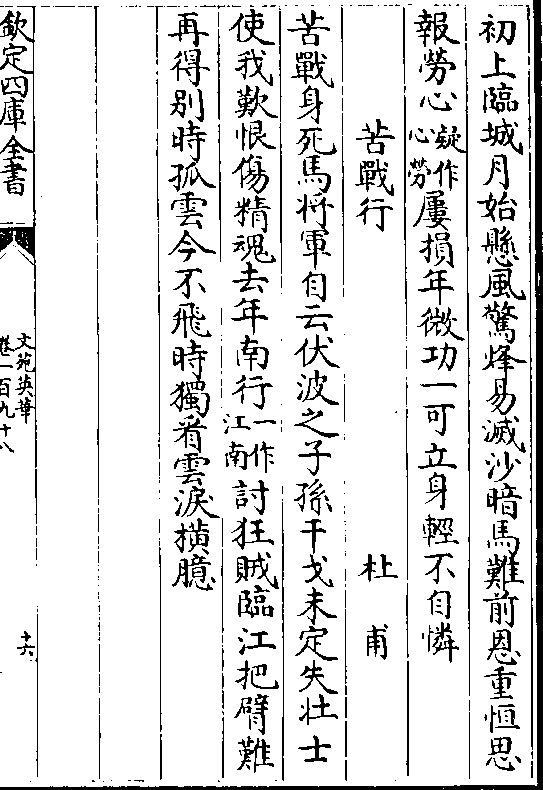 初上臨城月始懸風驚烽易滅沙暗馬難前恩重恒思
報勞心疑作心勞屢損年微功一可立身輕不自憐
苦戰行 杜甫
苦戰身死馬將軍自云伏波之子孫干戈未定失壯士
使我歎恨傷精魂去年南行一作江南討狂賊臨江把臂難
再得别時孤雲今不飛時獨看雲淚橫臆
欽定四庫全書
文苑英華
卷一百九十八
十六